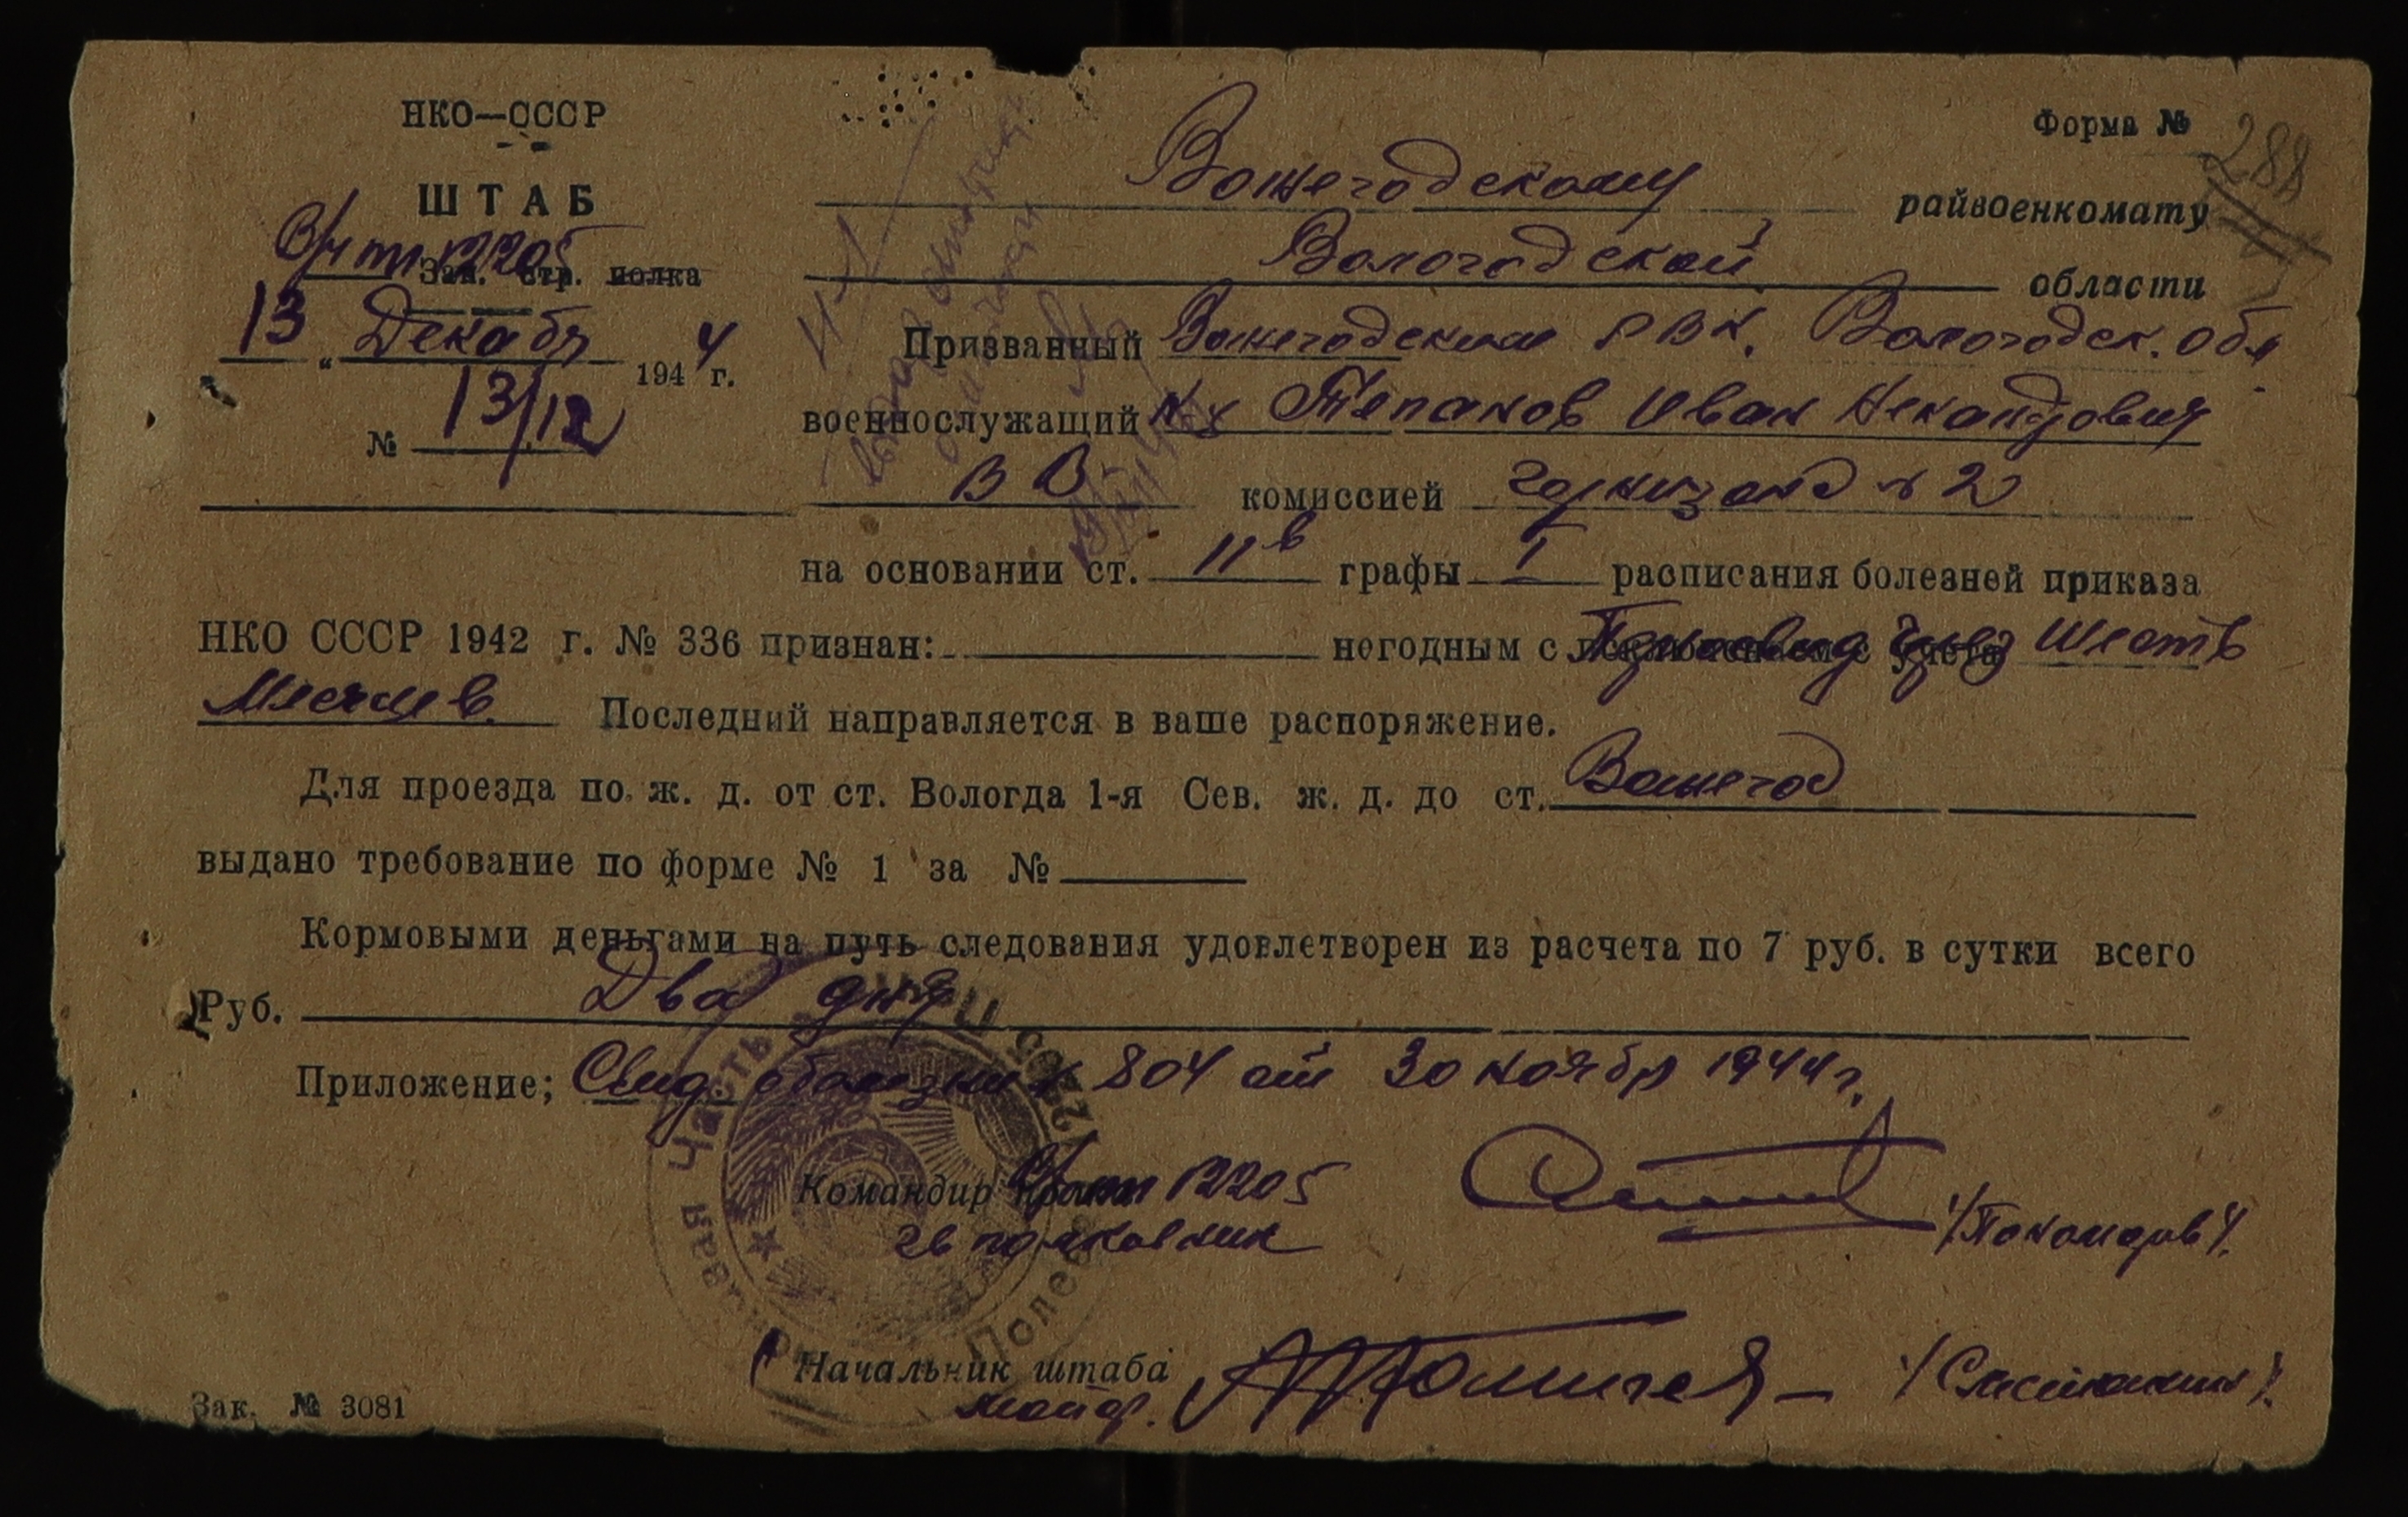 НКО—СССР
ШТАБ
В/ч пп 12205
Зап. стр. полка
13 „ Декабя 1944 г.
№ 13/12
Форма №
288
Вожегодскому райвоенкомату
Вологодской области
Призванный Вожегодским РВК, Вологодск. обл
военнослужащий к-ц Степанов Иван Некандрович
ВВ комиссией гарнизонд № 2
на основании ст. 11в графы I расписания болезней приказа
НКО СССР 1942 г. № 336 признан: негодным с исключением с учета шесть
Месяцев. Последний направляется в ваше распоряжение.
Для проезда по ж. д. от ст. Вологда 1-я Сев. ж. д. до ст. Вожегод
выдано требование по форме № 1 за №
Кормовыми деньгами на путь следования удовлетворен из расчета по 7 руб. в сутки всего
Руб. Два дня
Приложение; Свид. о болезни № 804 от 30 ноября 1944 г.
Командир полка в/ч пп 12205
гв полковник
Начальник штаба
майор.
Зак. № 3081
Часть
Полевая